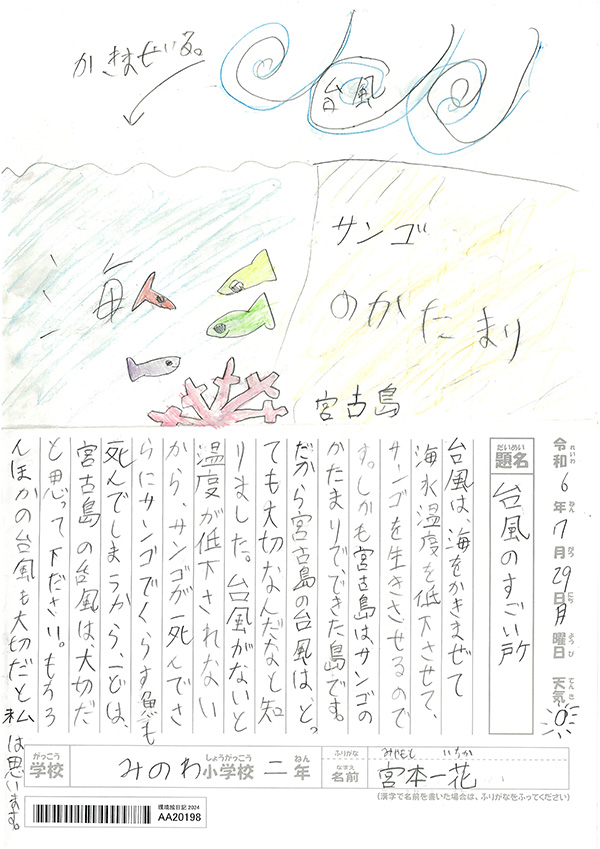 かきまぜいる。
台風
海
サンゴ
のがたまり
宮古島
令和6年7月29日月曜日 天気
れいわ ねん がつ にち ようび てんき
だいめい
題名
台風のすごい所
台風は、海をかきまぜて
海水温度を低下させて、
サンゴを生きさせるので
す。しかも宮古島はサンゴの
かたまりで、できた島です。
だから宮古島の台風は、とっ
ても大切なんだなと知
りました。台風がないと
温度が低下されない
から、サンゴが死んでさ
らにサンゴでくらす魚も
死んでしまうから、一どは、
宮古島の台風は、大切だ
と思って下ださい。もちろ
んほかの台風も大切だと私は思います。
がっこう しょうがっこう ねん
学校 みのわ小学校 二年
ふりがな みやもと いちか
なまえ
名前 宮本一花
(漢字で名前を書いた場合は、ふりがなをふってください)
環境絵日記2024
AA20198